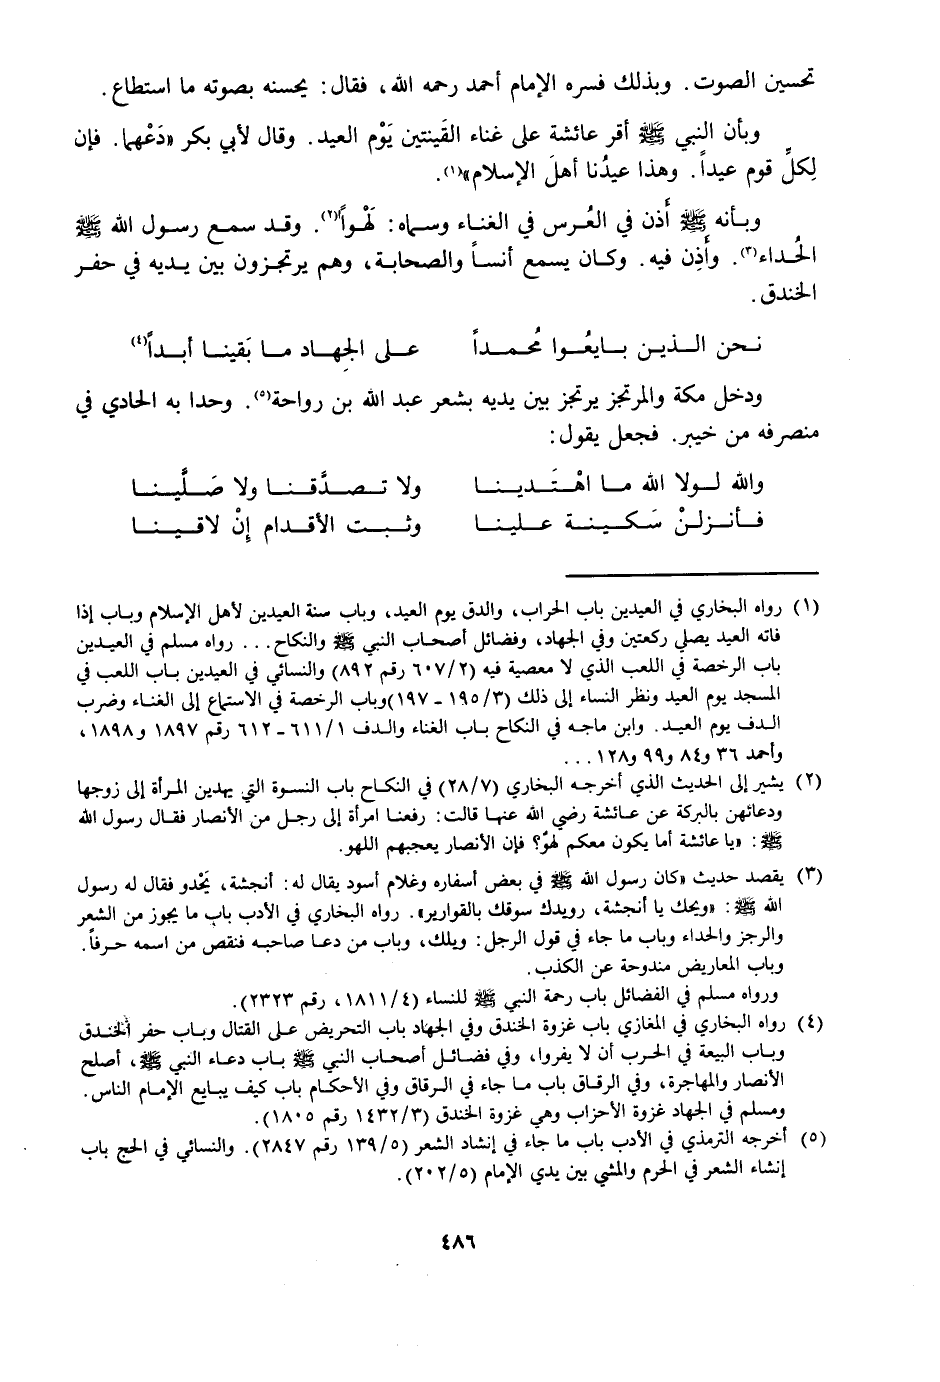 تحسين الصوت. وبذلك فسره الإمام أحمد رحمه الله، فقال: يحسنه بصوته ما استطاع.
وبأن النبي ﷺ أقر عائشة على غناء القَينتين يَوْم العيد. وقال لأبي بكر «دَعْهما. فإن
لِكلِّ قوم عيداً. وهذا عيدُنا أهلَ الإسلام»(١).
وبأنه ﷺ أَذن في العُرس في الغناء وسماه: لَهْواً(٢). وقد سمع رسول الله ﷺ
الحُداء(٣). وأَذِن فيه. وكان يسمع أنساً والصحابة، وهم يرتجزون بين يديه في حفر
الخندق.
نحن الذين بايعُوا مُحمداً على الجهاد ما بَقينا أبداً(٤)
ودخل مكة والمرتجز يرتجز بين يديه بشعر عبد الله بن رواحة(٥). وحدا به الحادي في
منصرفه من خيبر. فجعل يقول:
والله لولا الله ما اهْتَدينا ولا تصدَّقنا ولا صَلَّينا
فأنزلنْ سَكينة علينا وثبت الأقدام إنْ لاقينا
(١) رواه البخاري في العيدين باب الحراب، والدق يوم العيد، وباب سنة العيدين لأهل الإسلام وباب إذا
فاته العيد يصلي ركعتين وفي الجهاد، وفضائل أصحاب النبي ﷺ والنكاح... رواه مسلم في العيدين
باب الرخصة في اللعب الذي لا معصية فيه (٦٠٧/٢ رقم ٨٩٢) والنسائي في العيدين باب اللعب في
المسجد يوم العيد ونظر النساء إلى ذلك (١٩٥/٣ ـ ١٩٧)وباب الرخصة في الاستماع إلى الغناء وضرب
الدف يوم العيد. وابن ماجه في النكاح باب الغناء والدف ٦١١/١ ـ ٦١٢ رقم ١٨٩٧ و١٨٩٨،
وأحمد ٣٦ و٨٤ و٩٩ و١٢٨...
(٢) يشير إلى الحديث الذي أخرجه البخاري (٢٨/٧) في النكاح باب النسوة التي يهدين المرأة إلى زوجها
ودعائهن بالبركة عن عائشة رضي الله عنها قالت: رفعنا امرأة إلى رجل من الأنصار فقال رسول الله
ﷺ: «يا عائشة أما يكون معكم لهوٌ؟ فإن الأنصار يعجبهم اللهو.
(٣) يقصد حديث «كان رسول الله ﷺ في بعض أسفاره وغلام أسود يقال له: أنجشة، يَحْدو فقال له رسول
الله ﷺ: «ويحك يا أنجشة، رويدك سوقك بالقوارير». رواه البخاري في الأدب باب ما يجوز من الشعر
والرجز والحداء وباب ما جاء في قول الرجل: ويلك، وباب من دعا صاحبه فنقص من اسمه حرفاً.
وباب المعاريض مندوحة عن الكذب.
ورواه مسلم في الفضائل باب رحمة النبي ﷺ للنساء (١٨١١/٤، رقم ٢٣٢٣).
(٤) رواه البخاري في المغازي باب غزوة الخندق وفي الجهاد باب التحريض على القتال وباب حفر الخندق
وباب البيعة في الحرب أن لا يفروا، وفي فضائل أصحاب النبي ﷺ باب دعاء النبي ﷺ، أصلح
الأنصار والمهاجرة، وفي الرقاق باب ما جاء في الرقاق وفي الأحكام باب كيف يبايع الإمام الناس.
ومسلم في الجهاد غزوة الأحزاب وهي غزوة الخندق (١٤٣٢/٣ رقم ١٨٠٥).
(٥) أخرجه الترمذي في الأدب باب ما جاء في إنشاد الشعر (١٣٩/٥ رقم ٢٨٤٧). والنسائي في الحج باب
إنشاء الشعر في الحرم والمشي بين يدي الإمام (٢٠٢/٥).
٤٨٦